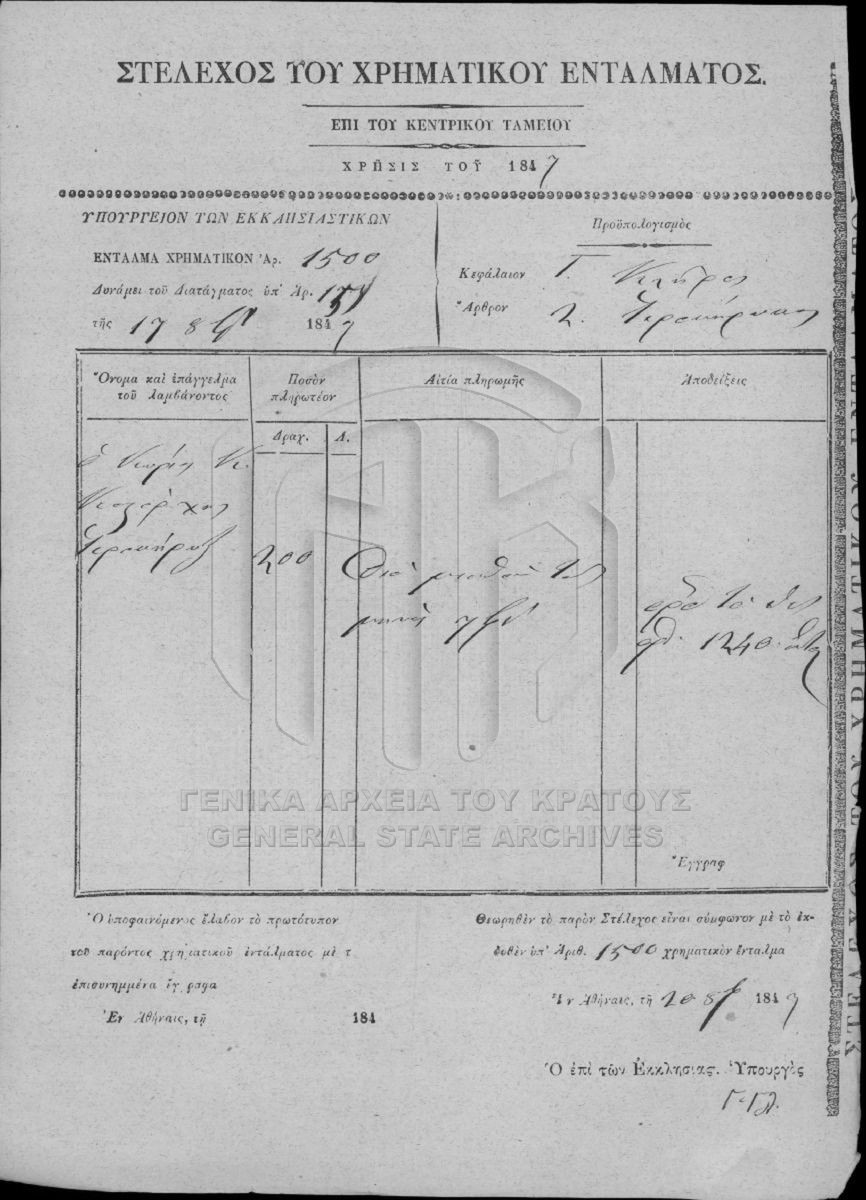 ΣΤΕΛΕΧΟΣ ΤΟΥ ΧΡΗΜΑΤΙΚΟΥ ΕΝΤΑΛΜΑΤΟΣ.
ΕΠΙ ΤΟΥ ΚΕΝΤΡΙΚΟΥ ΤΑΜΕΙΟΥ
ΧΡΗΣΙΣ ΤΟΥ 1847
ΥΠΟΥΡΓΕΙΟΝ ΤΩΝ ΕΚΚΛΗΣΙΑΣΤΙΚΩΝ
ΕΝΤΑΛΜΑ ΧΡΗΜΑΤΙΚΟΝ Ἀρ. 1500
Δυνάμει τοῦ Διατάγματος ὑπ' Ἀρ.
τῆς 17 1847
Προϋπολογισμὸς
Κεφάλαιον Γ. Κλῆρος
Ἄρθρον 2. Ἱεροκήρυκες
Ὄνομα καὶ ἐπάγγελμα
τοῦ λαμβάνοντος
Ποσὸν
πληρωτέον
Αἰτία πληρωμῆς
Ἀποδείξεις
Δραχ.
Λ.
Ἱεροκήρυξ 200
διὰ μισθὸν του
μηνὸς
1240
ΓΕΝΙΚΑ ΑΡΧΕΙΑ ΤΟΥ ΚΡΑΤΟΥΣ
GENERAL STATE ARCHIVES
Ἔγγραφ
Ὁ ὑποφαινόμενος ἔλαβον τὸ πρωτότυπον
τοῦ παρόντος χρηματικοῦ ἐντάλματος μὲ τ
ἐπισυνημμένα ἔγγραφα
Ἐν Ἀθήναις, τῇ 184
Θεωρηθὲν τὸ παρὸν Στέλεχος εἶναι σύμφωνον μὲ τὸ ἐκ-
δοθὲν ὑπ' Ἀριθ. 1500 χρηματικὸν ἔνταλμα
Ἐν Ἀθήναις, τῇ 20 1847
Ὁ ἐπὶ τῶν Ἐκκλησιας. Ὑπουργὸς
ΣΤΕΛΕΧΟΣ ΤΟΥ ΧΡΗΜΑΤΙΚΟΥ